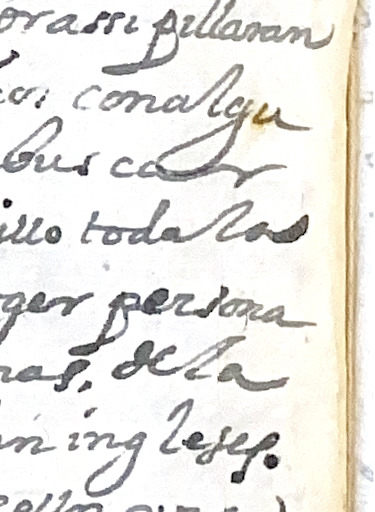 orassi pillaran
con algu
buscar
illo toda las
ger persona
nas, de la
un ingleses.